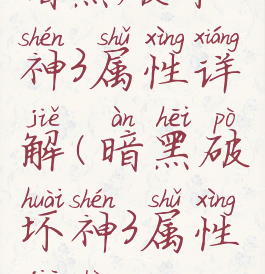 shén shǔ xìng xiáng
神3属性详
jiě àn hēi pò
解(暗黑破
huài shén shǔ xìng
坏神3属性